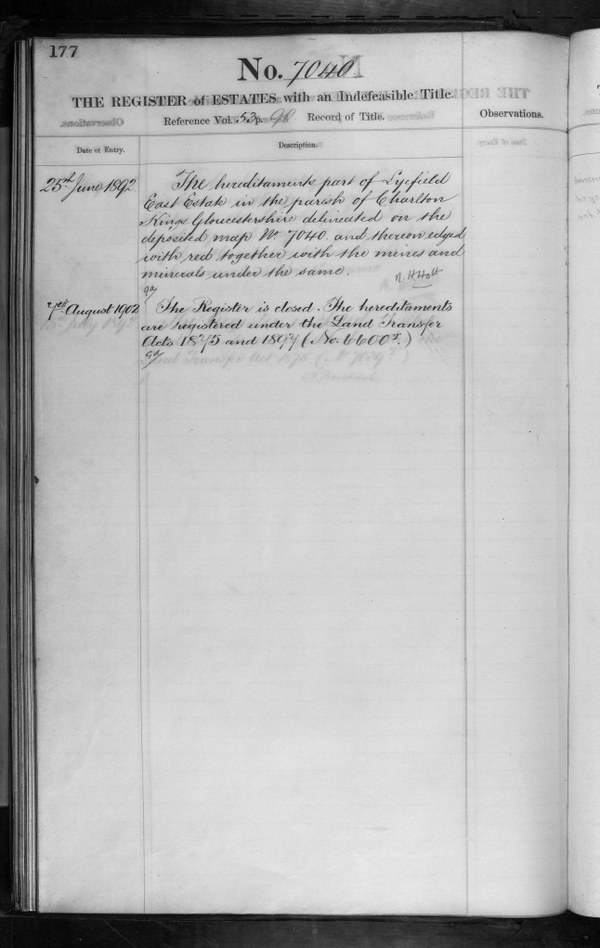 177
No. 7040
THE REGISTER of ESTATES with an Indefeasible Title.
Reference Vol. 53 p. Record of Title.
Observations.
Date of Entry.
Description.
25th June 1892
The hereditaments part of Lyefield
East Estate in the parish of Charlton
Kings Gloucestershire delineated on the
deposited map No 7040 and thereon edged
with red together with the mines and
minerals under the same.
R. H. Holt
7th August 1902
The Register is closed. The hereditaments
are registered under the Land Transfer
Acts 1875 and 1897 (No. 6600.)